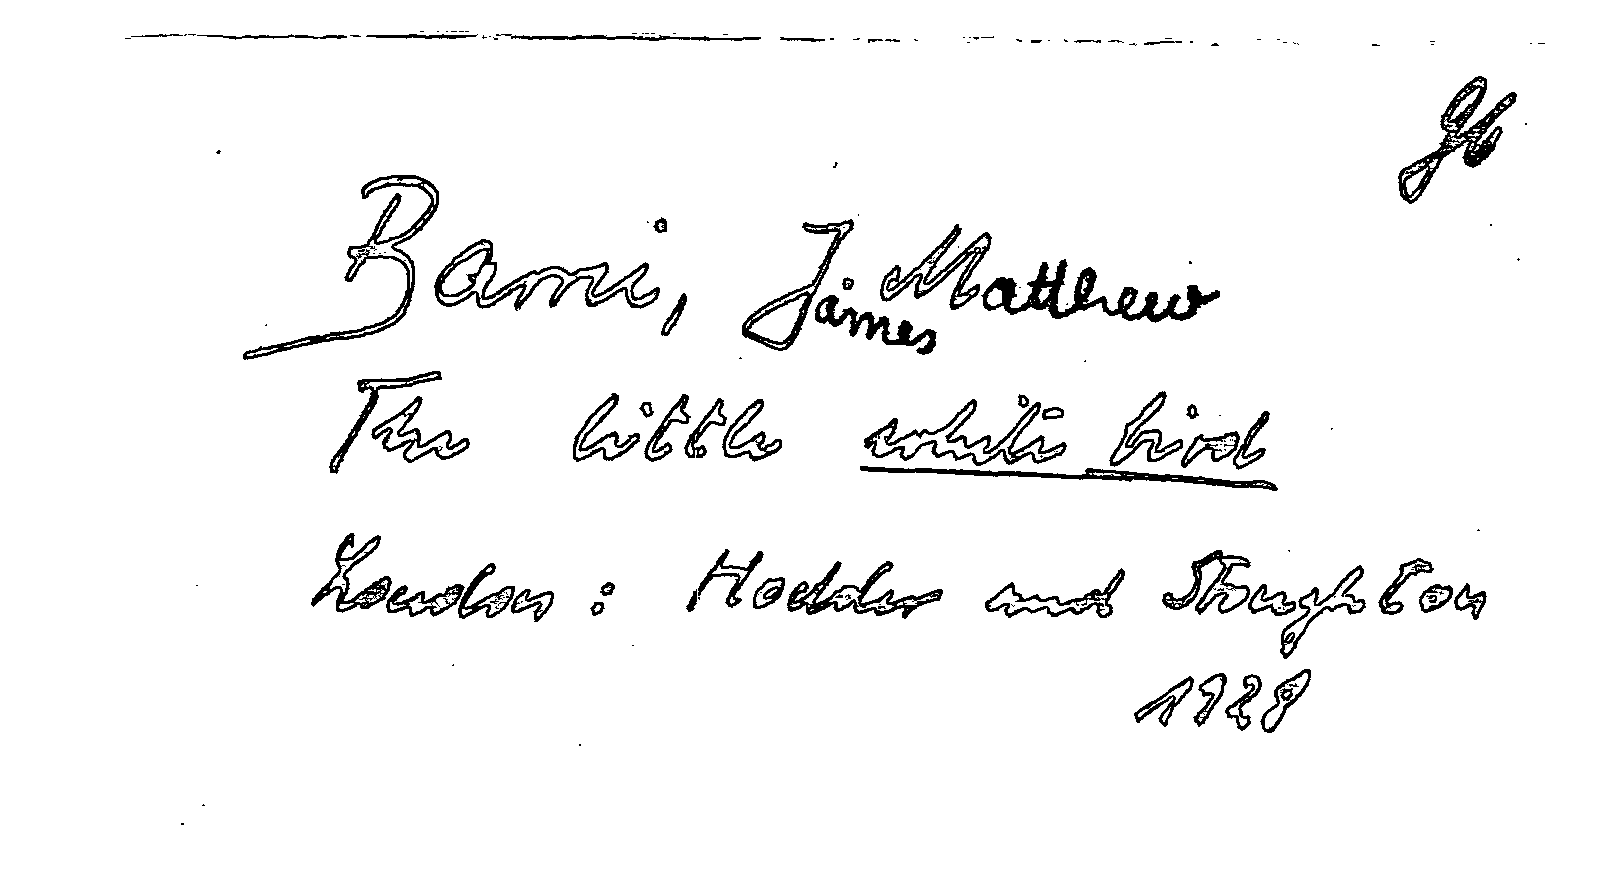 Barrie, James Matthew
The little white bird
London : Hodder and Stoughton
1928